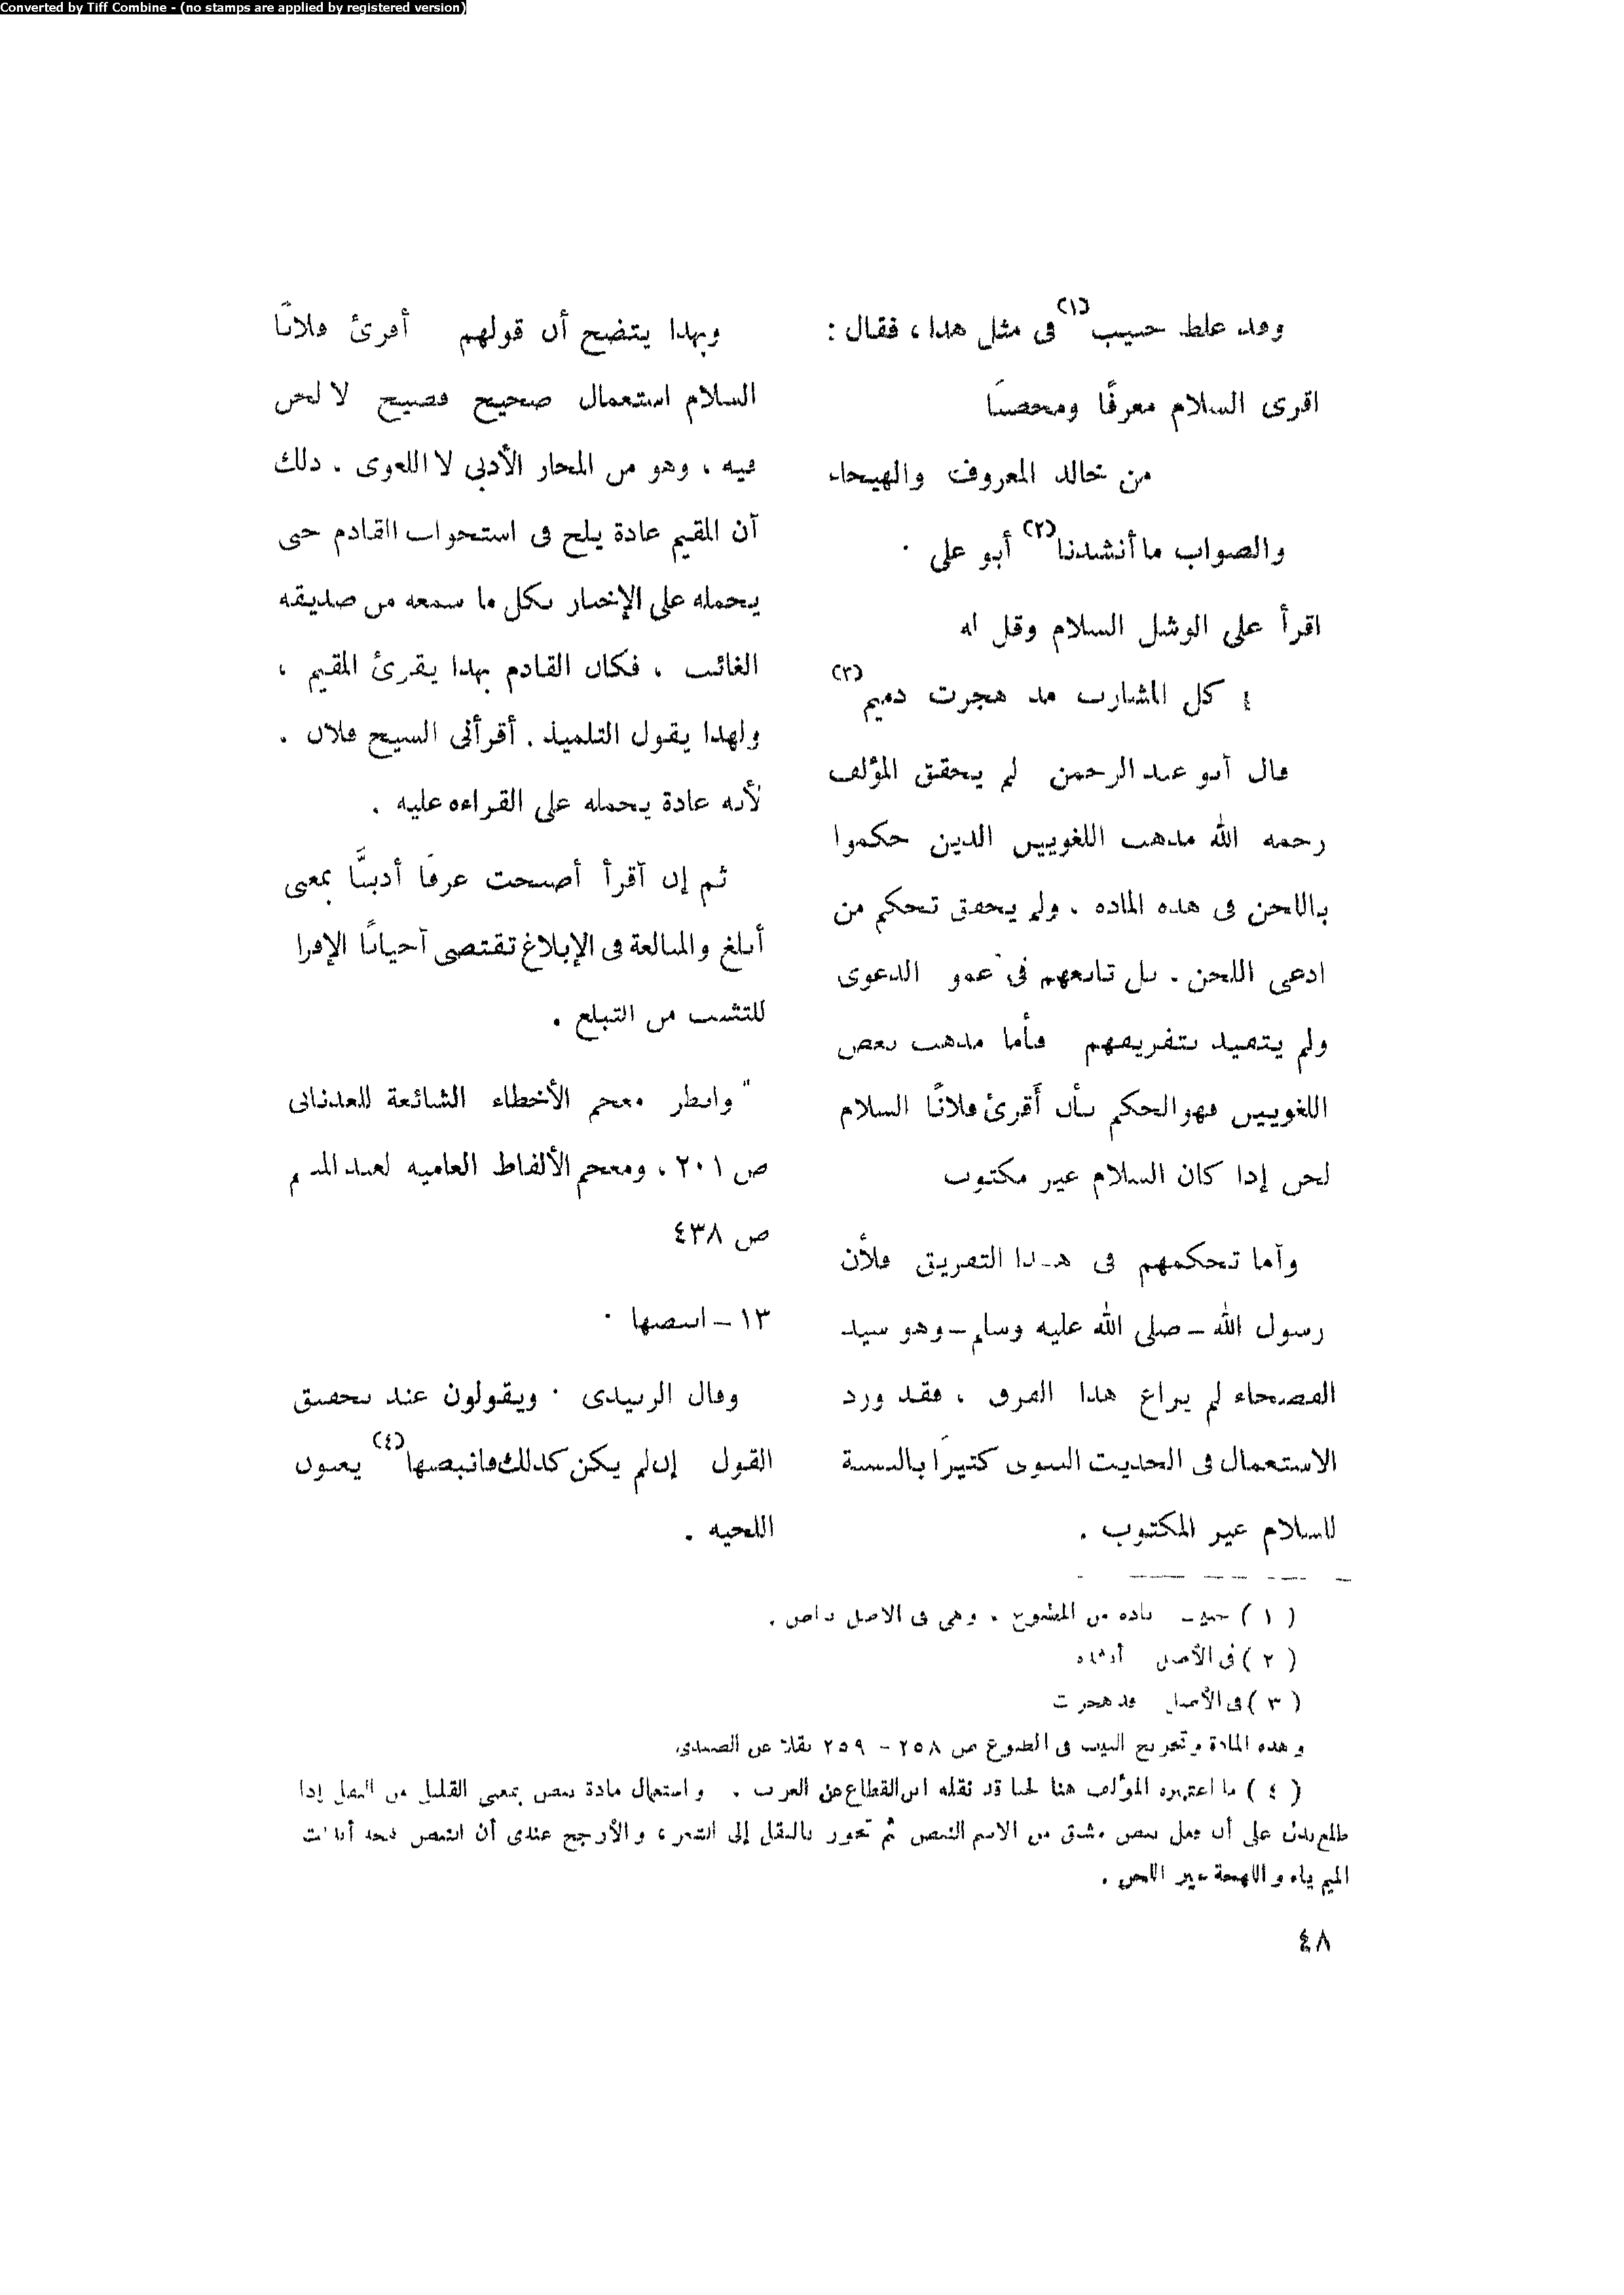 Converted by Tiff Combine - (no stamps are applied by registered version)
وقد غلط حبيب(١) فى مثل هذا ، فقال :
اقرى السلام معرفًا ومحصبًا
من خالد المعروف والهيجاء
والصواب ما أنشدنا(٢) أبو على .
اقرأ على الوشل السلام وقل له
كل المشارب مذ هجرت ذميم(٣)
قال أبو عبد الرحمن لم يحقق المؤلف
رحمه الله مذهب اللغويين الذين حكموا
باللحن فى هذه المادة ، ولم يحقق تحكم من
ادعى اللحن . بل تابعهم فى عمو الدعوى
ولم يتقيد بتفريقهم فأما مذهب بعض
اللغويين فهو الحكم بأن أَقرئ فلانًا السلام
لحن إذا كان السلام غير مكتوب
وأما تحكمهم فى هذا التفريق فلأن
رسول الله – صلى الله عليه وسلم – وهو سيد
الفصحاء لم يراع هذا الفرق ، فقد ورد
الاستعمال فى الحديث النبوى كثيرًا بالنسبة
للسلام غير المكتوب .
وبهذا يتضح أن قولهم أقرئ فلانًا
السلام استعمال صحيح فصيح لا لحن
فيه ، وهو من المجاز الأدبى لا اللغوى . ذلك
أن المقيم عادة يلح فى استجواب القادم حتى
يحمله على الإخبار بكل ما سمعه من صديقه
الغائب ، فكان القادم بهذا يقرئ المقيم ،
ولهذا يقول التلميذ . أقرأنى الشيخ فلان .
لأنه عادة يحمله على القراءة عليه .
ثم إن أقرأ أصبحت عرفًا أدبيًّا بمعنى
أبلغ والمبالغة فى الإبلاغ تقتضى أحيانًا الإقرا
للتثبت من التبلغ .
وانظر معجم الأخطاء الشائعة للعدنانى
ص ٢٠١ ، ومعجم الألفاظ العامية لعبد المنعم
ص ٤٣٨
١٣ – انبصها .
وقال الزبيدى . ويقولون عند تحقيق
القول إن لم يكن كذلك فانبصها(٤) يعنون
اللحية .
( ١ ) حبيب زيادة من المطبوع ، وهى فى الأصل بياض .
( ٢ ) فى الأصل أنشده
( ٣ ) فى الأصل قد هجرت
وهذه المادة وتخريج البيت فى المطبوع ص ٢٥٨ – ٢٥٩ نقلا عن الصفدى
( ٤ ) ما اعتبره المؤلف هنا لحنا قد نقله ابن القطاع عن العرب . واستعمال مادة نبص بمعنى القليل من البقل إذا
طلع يدل على أن فعل نبص مشتق من الاسم النبص ثم تحور بالنقل إلى الشعر ، والأرجح عندى أن انبص نجد أبدلت
الميم ياء واللهجة غير اللحن .
٤٨